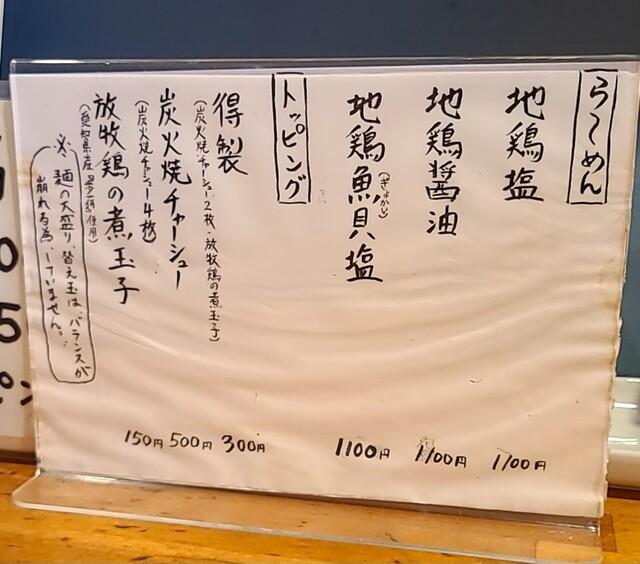 らーめん
地鶏塩 1100円
地鶏醤油 1100円
地鶏魚貝塩 1100円
(ぎょかい)
トッピング
得製 300円
(炭火焼チャーシュー2枚・放牧鶏の煮玉子)
炭火焼チャーシュー 500円
(炭火焼チャーシュー4枚)
放牧鶏の煮玉子 150円
※麺の大盛り、替え玉は、バランスが
崩れる為、していません。